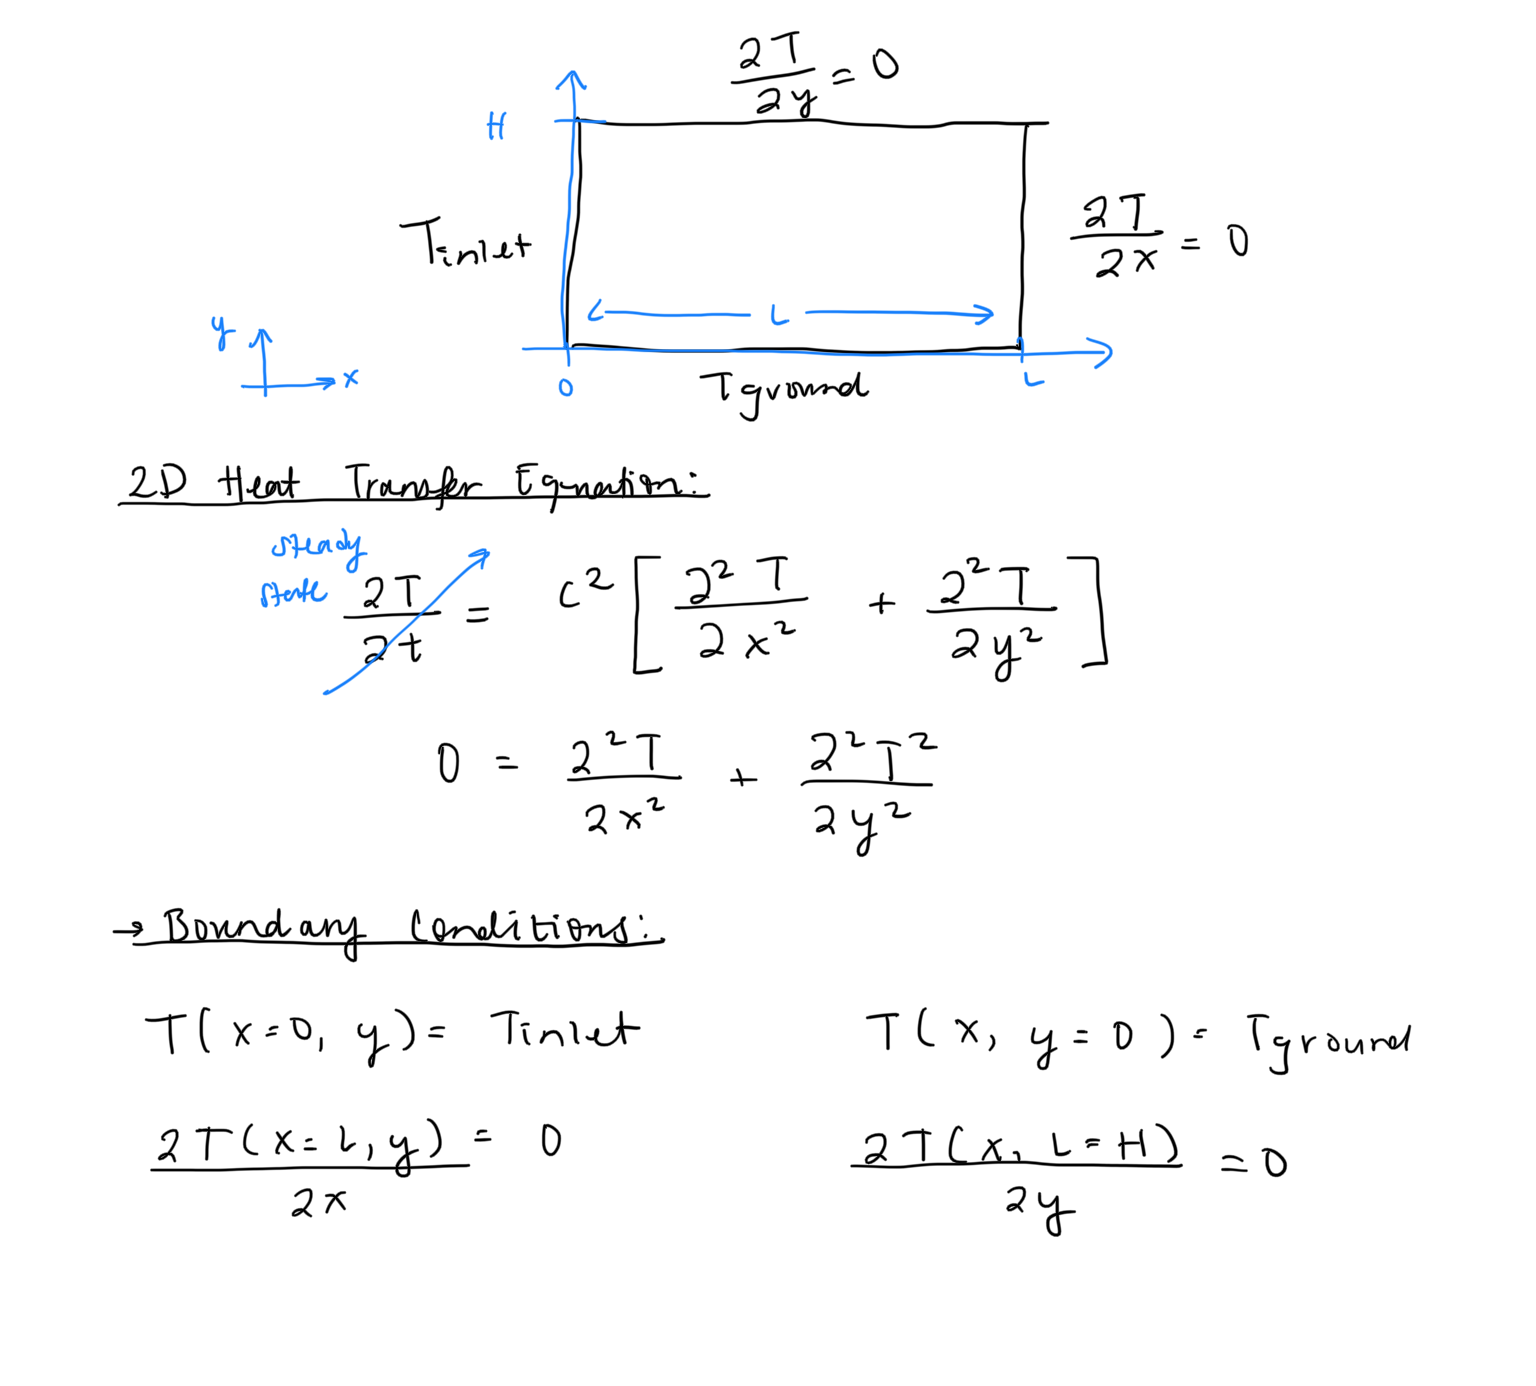 ∂T/∂y = 0
H
Tinlet
∂T/∂x = 0
L
y
x
0
L
Tground
2D Heat Transfer Equation:
steady
state
∂T/∂t = c² [ ∂²T/∂x² + ∂²T/∂y² ]
0 = ∂²T/∂x² + ∂²T²/∂y²
→ Boundary Conditions:
T(x=0, y) = Tinlet
T(x, y=0) = Tground
∂T(x=L, y)/∂x = 0
∂T(x, L=H)/∂y = 0